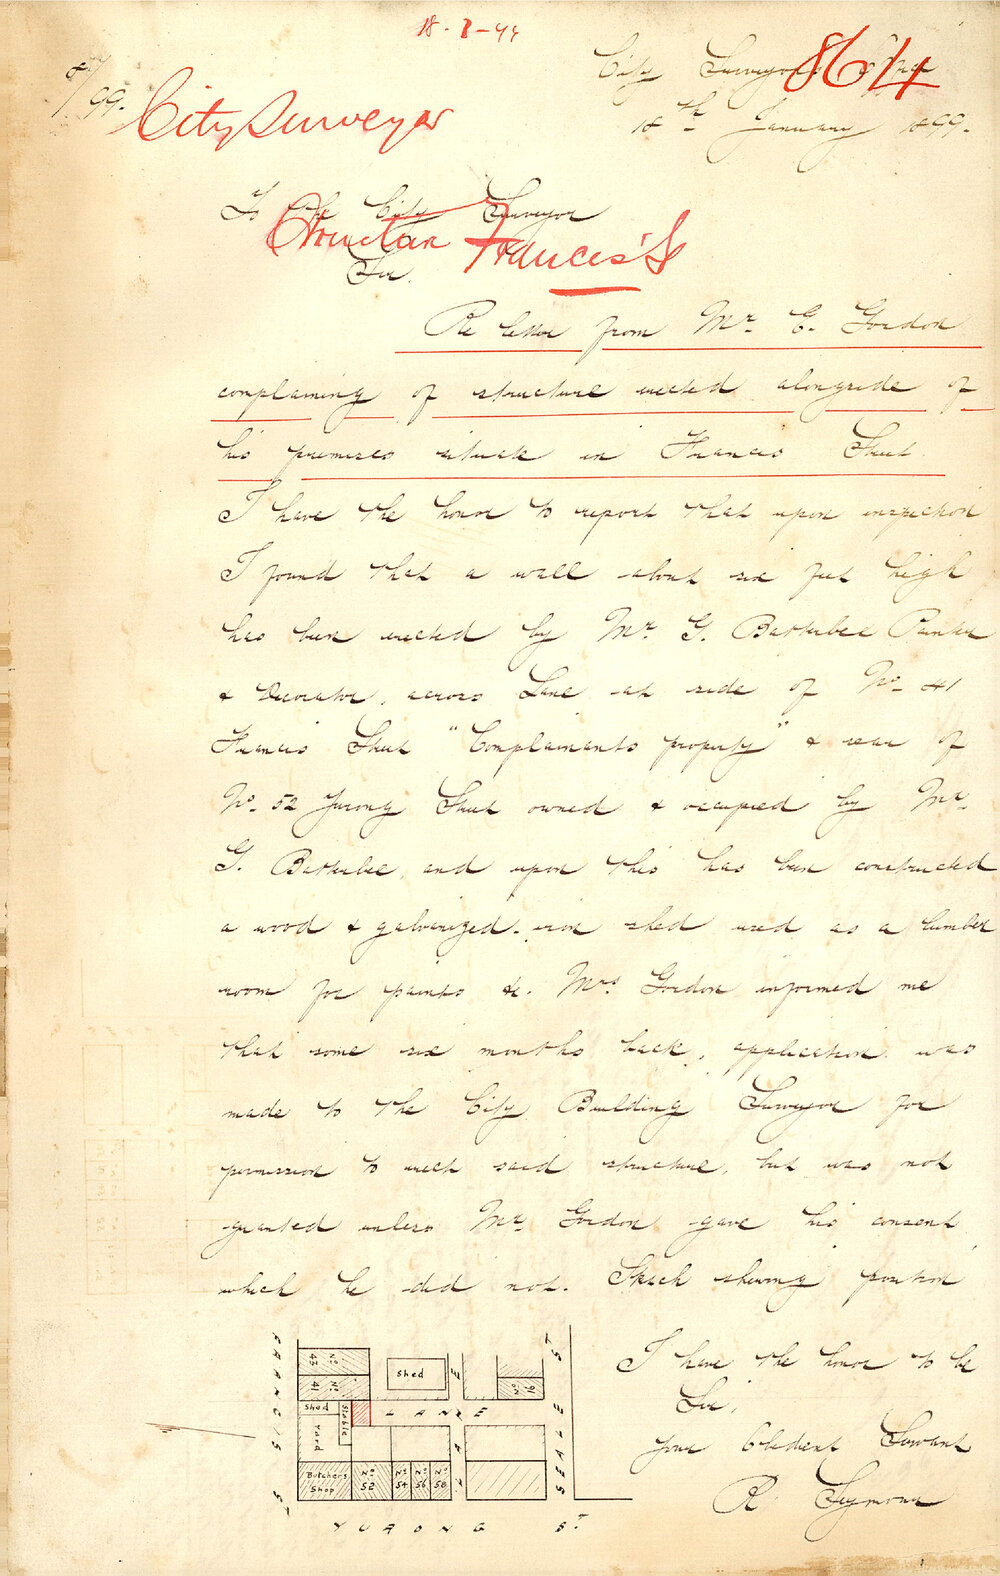 18-1-99
8614
City Surveyor's Office
18th January 1899.
/99.
City Surveyor
To the City Surveyor
Francis St
Sir.
Re letter from Mr. E. Gordon
complaining of structure erected alongside of
his premises situate in Francis Street
I have the honor to report that upon inspection
I found that a wall about six feet high
has been erected by Mr. G. Batterbee Painter
& Decorator, across Lane at side of No. 41
Francis Street "Complainants property" & rear of
No. 52 Yurong Street owned & occupied by Mr.
G. Batterbee, and upon this has been constructed
a wood & galvanized-iron shed used as a lumber
room for paints &c. Mrs. Gordon informed me
that some six months back, application was
made to the City Building Surveyor for
permission to erect said structure, but was not
granted unless Mr. Gordon gave his consent
which he did not. Sketch shewing position
I have the honor to be
Sir,
Your Obedient Servant
R. Seymour
FRANCIS ST
No 43
No 41
Shed
Shed
Stable
Yard
LANE
LANE
Butchers Shop
No 52
No 54
No 56
No 58
YURONG ST